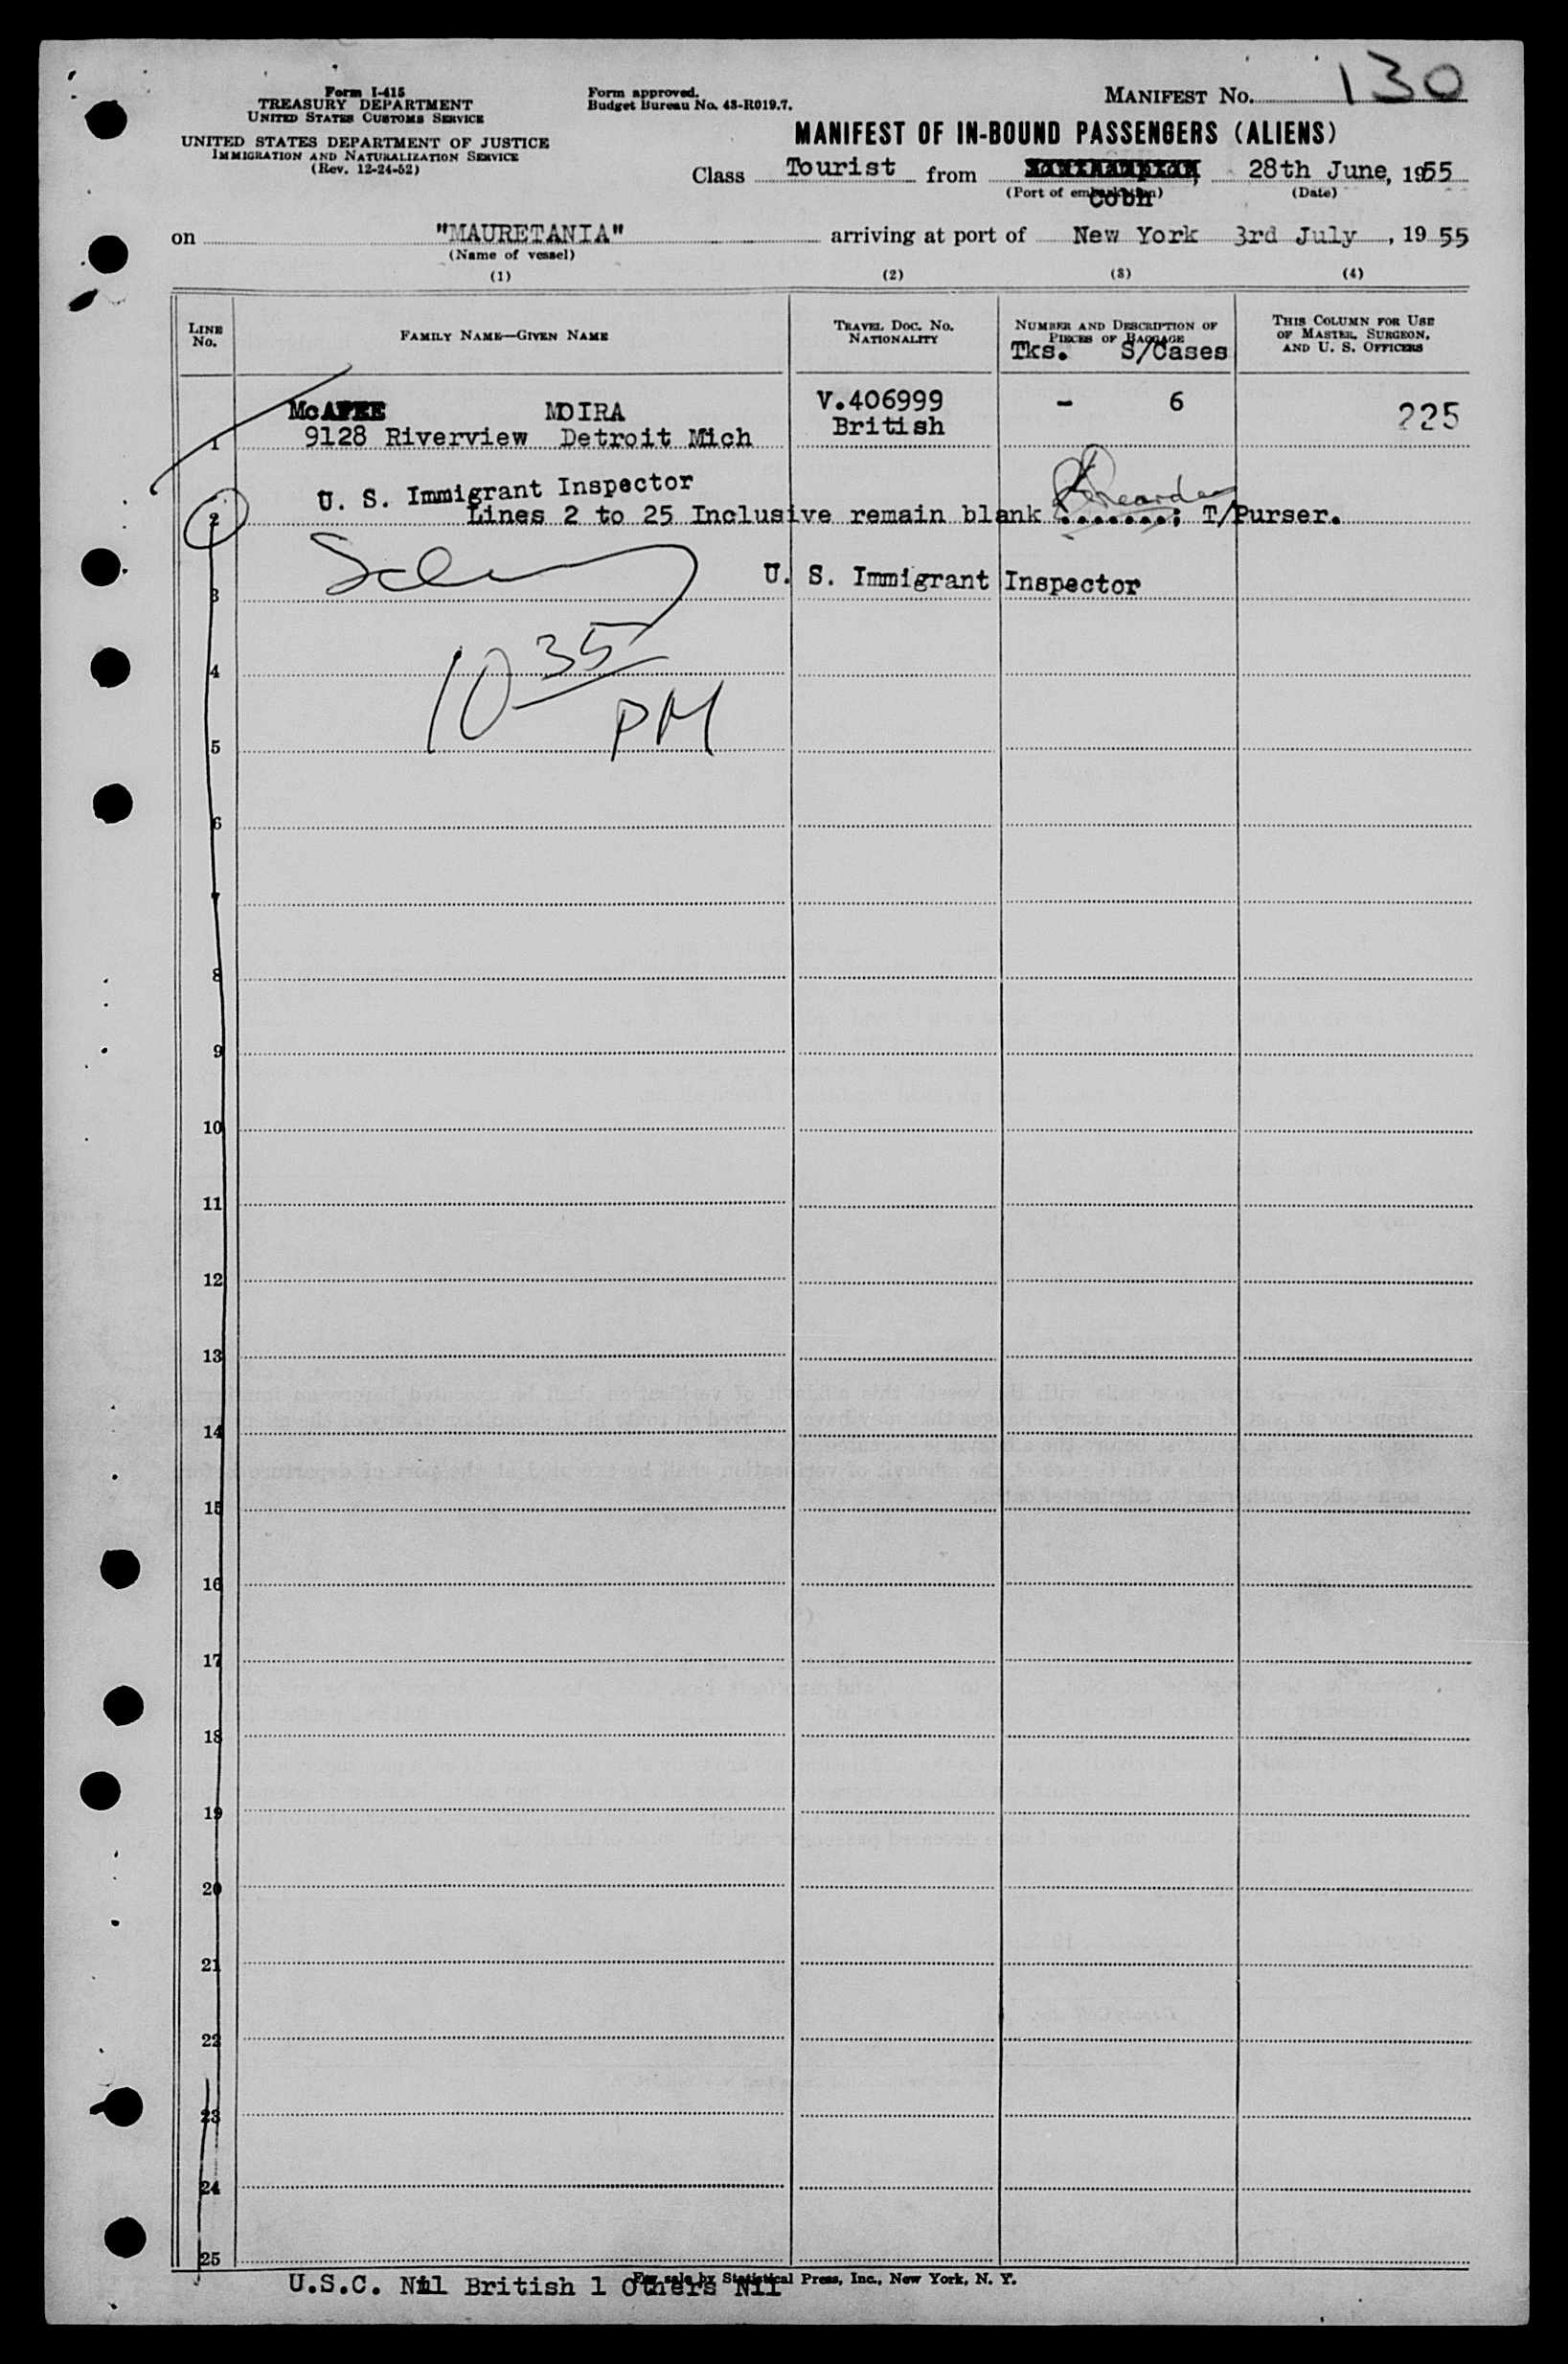 Form I-415
TREASURY DEPARTMENT
UNITED STATES CUSTOMS SERVICE
UNITED STATES DEPARTMENT OF JUSTICE
IMMIGRATION AND NATURALIZATION SERVICE
(Rev. 12-24-52)
Form approved.
Budget Bureau No. 43-R019.7.
MANIFEST NO. 130
MANIFEST OF IN-BOUND PASSENGERS (ALIENS)
Class Tourist from 28th June, 1955
(Port of embarkation) (Date)
Cobh
on "MAURETANIA" arriving at port of New York 3rd July, 1955
(Name of vessel)
(1) (2) (3) (4)
LINE No.
FAMILY NAME—GIVEN NAME
TRAVEL DOC. NO. NATIONALITY
NUMBER AND DESCRIPTION OF PIECES OF BAGGAGE
Tks. S/Cases
THIS COLUMN FOR USE OF MASTER, SURGEON, AND U. S. OFFICERS
McAFEE MOIRA V.406999 - 6 225
1 9128 Riverview Detroit Mich British
U. S. Immigrant Inspector
2 Lines 2 to 25 Inclusive remain blank ........; T/Purser.
U. S. Immigrant Inspector
3
10 35
4
PM
5
6
7
8
9
10
11
12
13
14
15
16
17
18
19
20
21
22
23
24
25
For sale by Statistical Press, Inc., New York, N. Y.
U.S.C. Nil British 1 Others Nil